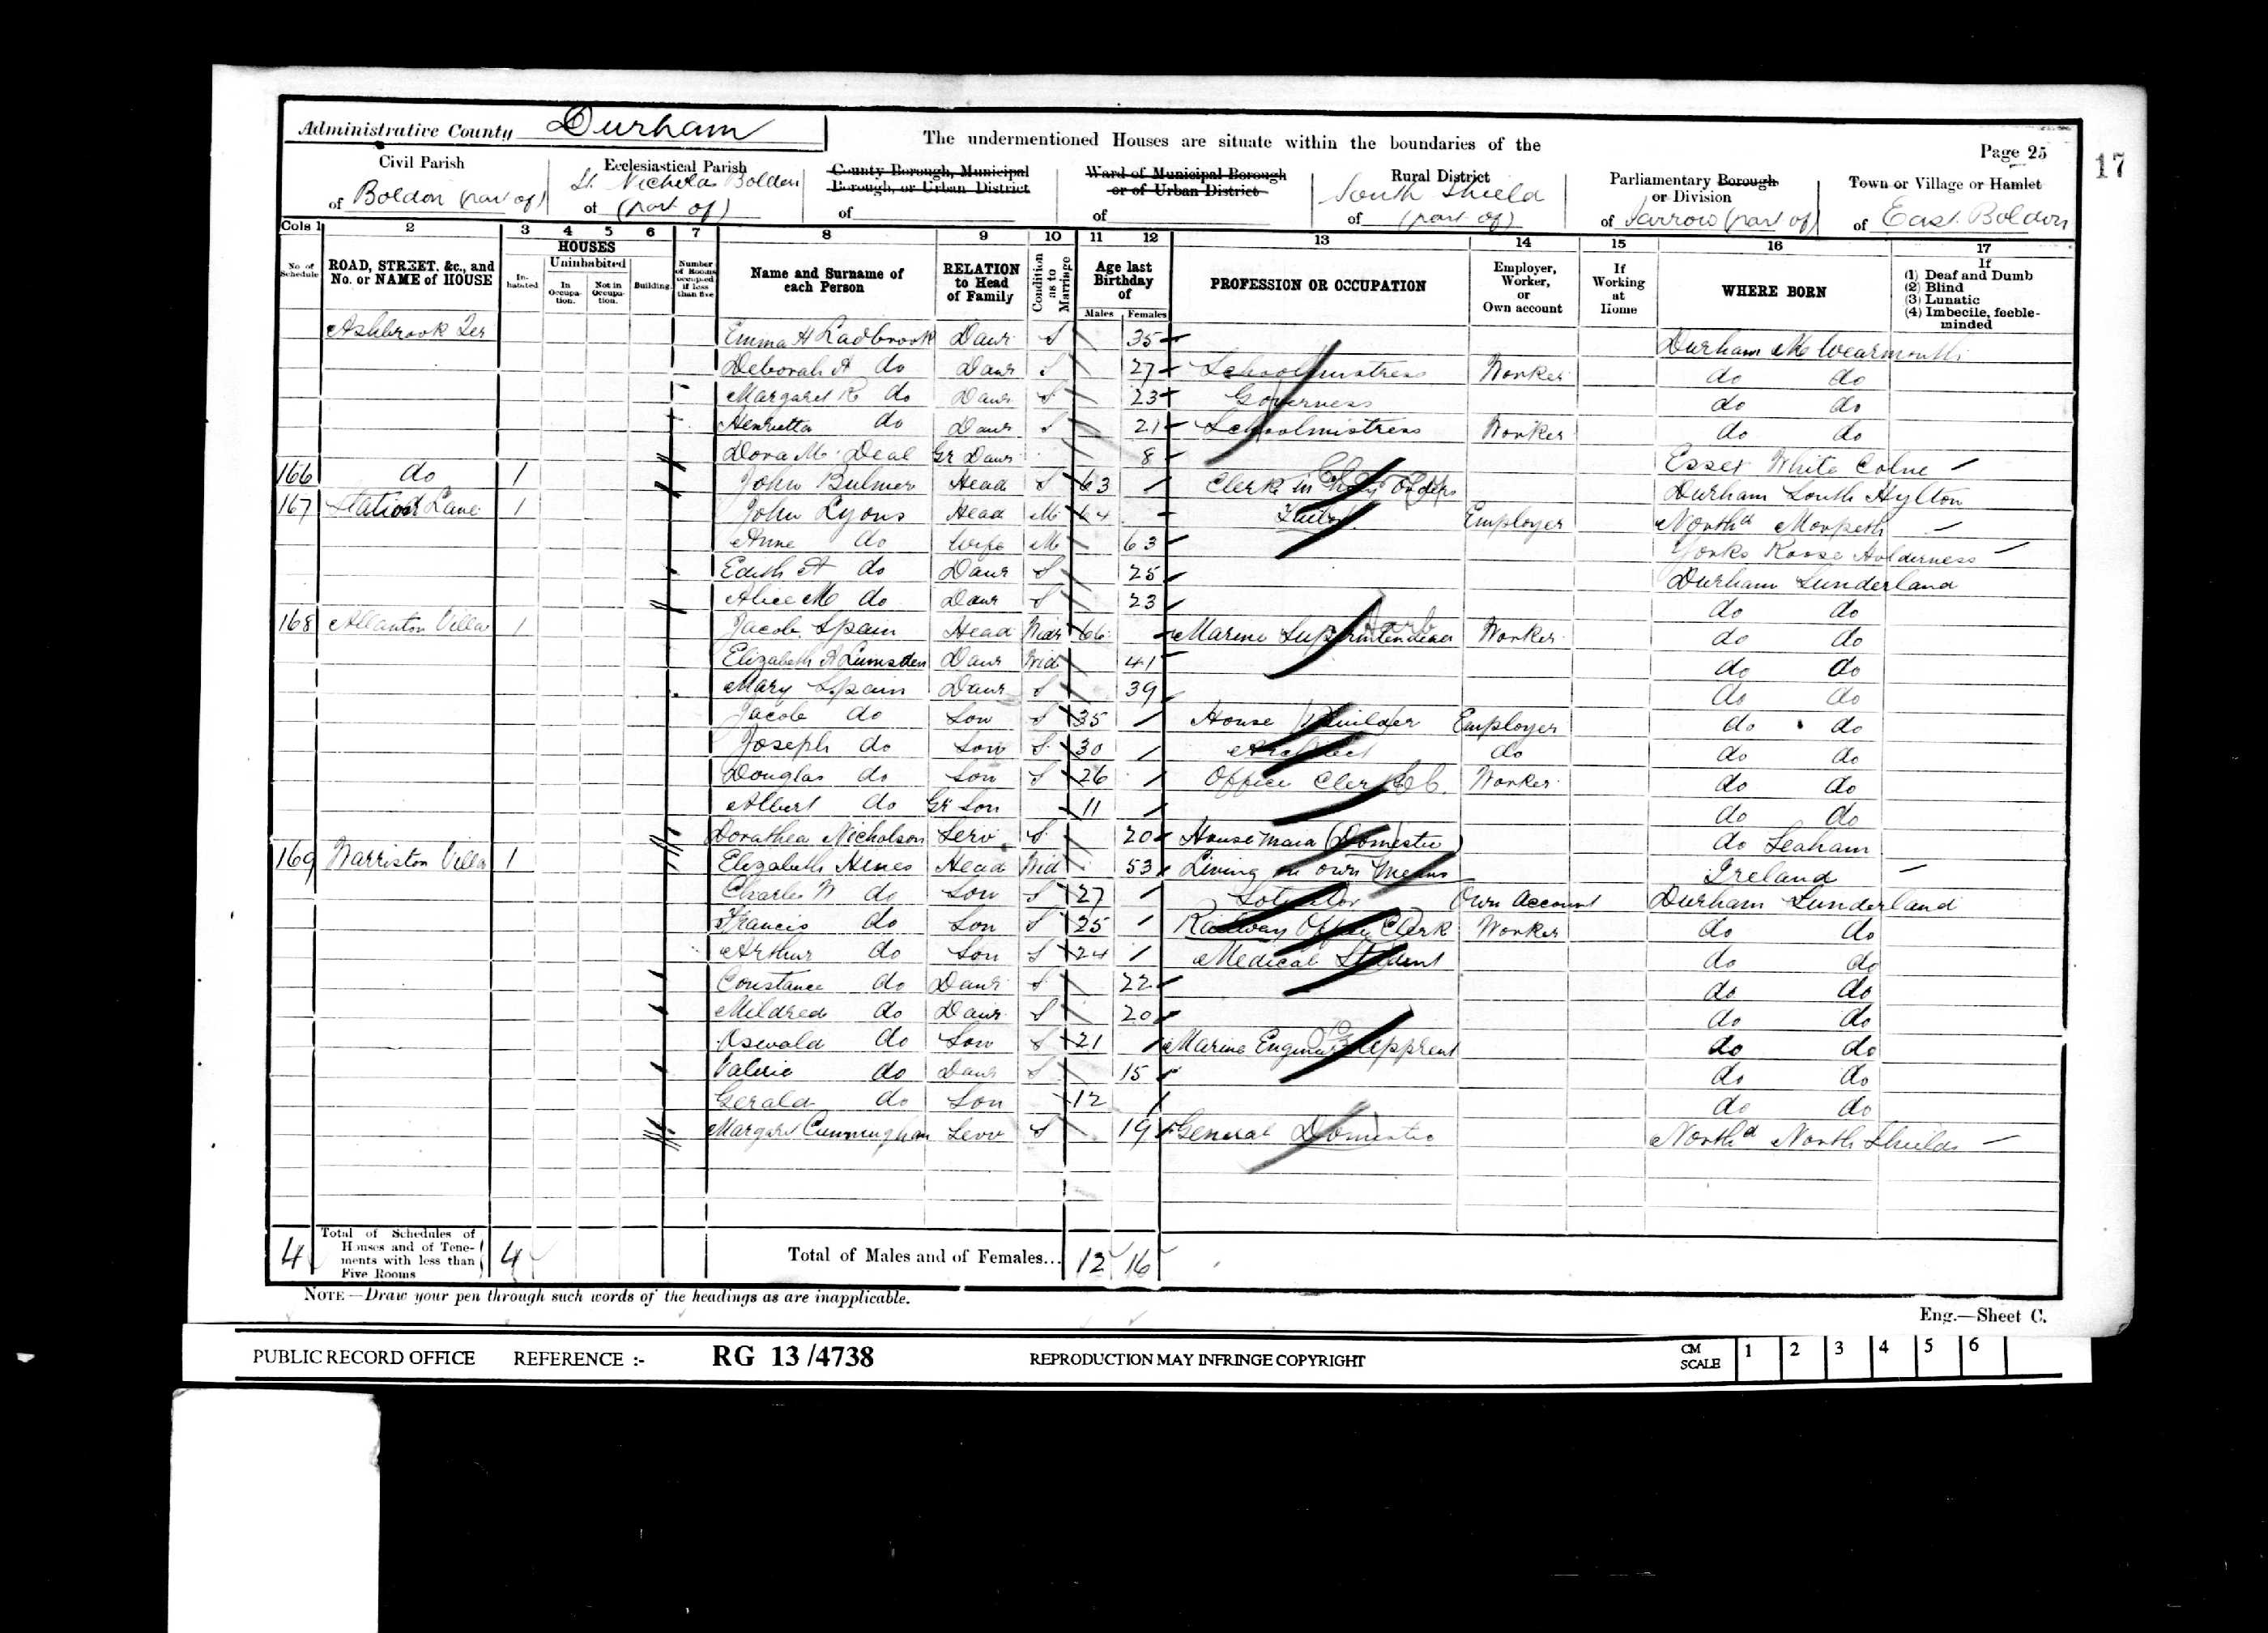 Administrative County Durham
The undermentioned Houses are situate within the boundaries of the
Page 25
17
Civil Parish
of Boldon (part of)
Ecclesiastical Parish
of St. Nicholas Boldon (part of)
County Borough, Municipal Borough, or Urban District
of
Ward of Municipal Borough or of Urban District
of
Rural District
of South Shield (part of)
Parliamentary Borough or Division
of Jarrow (part of)
Town or Village or Hamlet
of East Boldon
Cols 1 2 3 4 5 6 7 8 9 10 11 12 13 14 15 16 17
No. of Schedule
ROAD, STREET, &c., and No. or NAME of HOUSE
HOUSES
In-habited
Uninhabited
In Occupa-tion.
Not in Occupa-tion.
Building.
Number of Rooms occupied if less than five
Name and Surname of each Person
RELATION to Head of Family
Condition as to Marriage
Age last Birthday of
Males Females
PROFESSION OR OCCUPATION
Employer, Worker, or Own account
If Working at Home
WHERE BORN
If
(1) Deaf and Dumb
(2) Blind
(3) Lunatic
(4) Imbecile, feeble-minded
Ashbrook Ter Emma H Ladbrook Daur S 35 Durham M Wearmouth
Deborah A do Daur S 27 Schoolmistress Worker do do
Margaret R do Daur S 23 Governess do do
Henrietta do Daur S 21 Schoolmistress Worker do do
Dora M Deal Gr Daur 8 Essex White Colne
166 do 1 John Bulmer Head S 63 Clerk in Holy Orders Durham South Hylton
167 Station Lane 1 John Lyons Head M 64 Employer Northd Morpeth
Anne do Wife M 63 Yorks Holderness
Edith A do Daur S 25 Durham Sunderland
Alice M do Daur S 23 do do
168 Allanton Villa 1 Jacob Spain Head Widr 66 Marine Superintendent Worker do do
Elizabeth A Lumsden Daur Wid 41 do do
Mary Spain Daur S 39 do do
Jacob do Son S 35 House Builder Employer do do
Joseph do Son S 30 Architect do do do
Douglas do Son S 26 Office Clerk Worker do do
Albert do Gr Son 11 do do
Dorathea Nicholson Serv S 20 Housemaid (Domestic) do Seaham
169 Warriston Villa 1 Elizabeth Hines Head Wid 53 Living on own Means Ireland
Charles W do Son S 27 Solicitor Own Account Durham Sunderland
Francis do Son S 25 Railway Office Clerk Worker do do
Arthur do Son S 24 Medical Student do do
Constance do Daur S 22 do do
Mildred do Daur S 20 do do
Oswald do Son S 21 Marine Engineer Apprent do do
Valerie do Daur S 15 do do
Gerald do Son 12 do do
Margaret Cunningham Serv S 19 General Domestic Northd North Shields
4 Total of Schedules of Houses and of Tene-ments with less than Five Rooms 4
Total of Males and of Females... 12 16
NOTE—Draw your pen through such words of the headings as are inapplicable.
Eng.—Sheet C.
PUBLIC RECORD OFFICE REFERENCE :- RG 13/4738 REPRODUCTION MAY INFRINGE COPYRIGHT CM SCALE 1 2 3 4 5 6